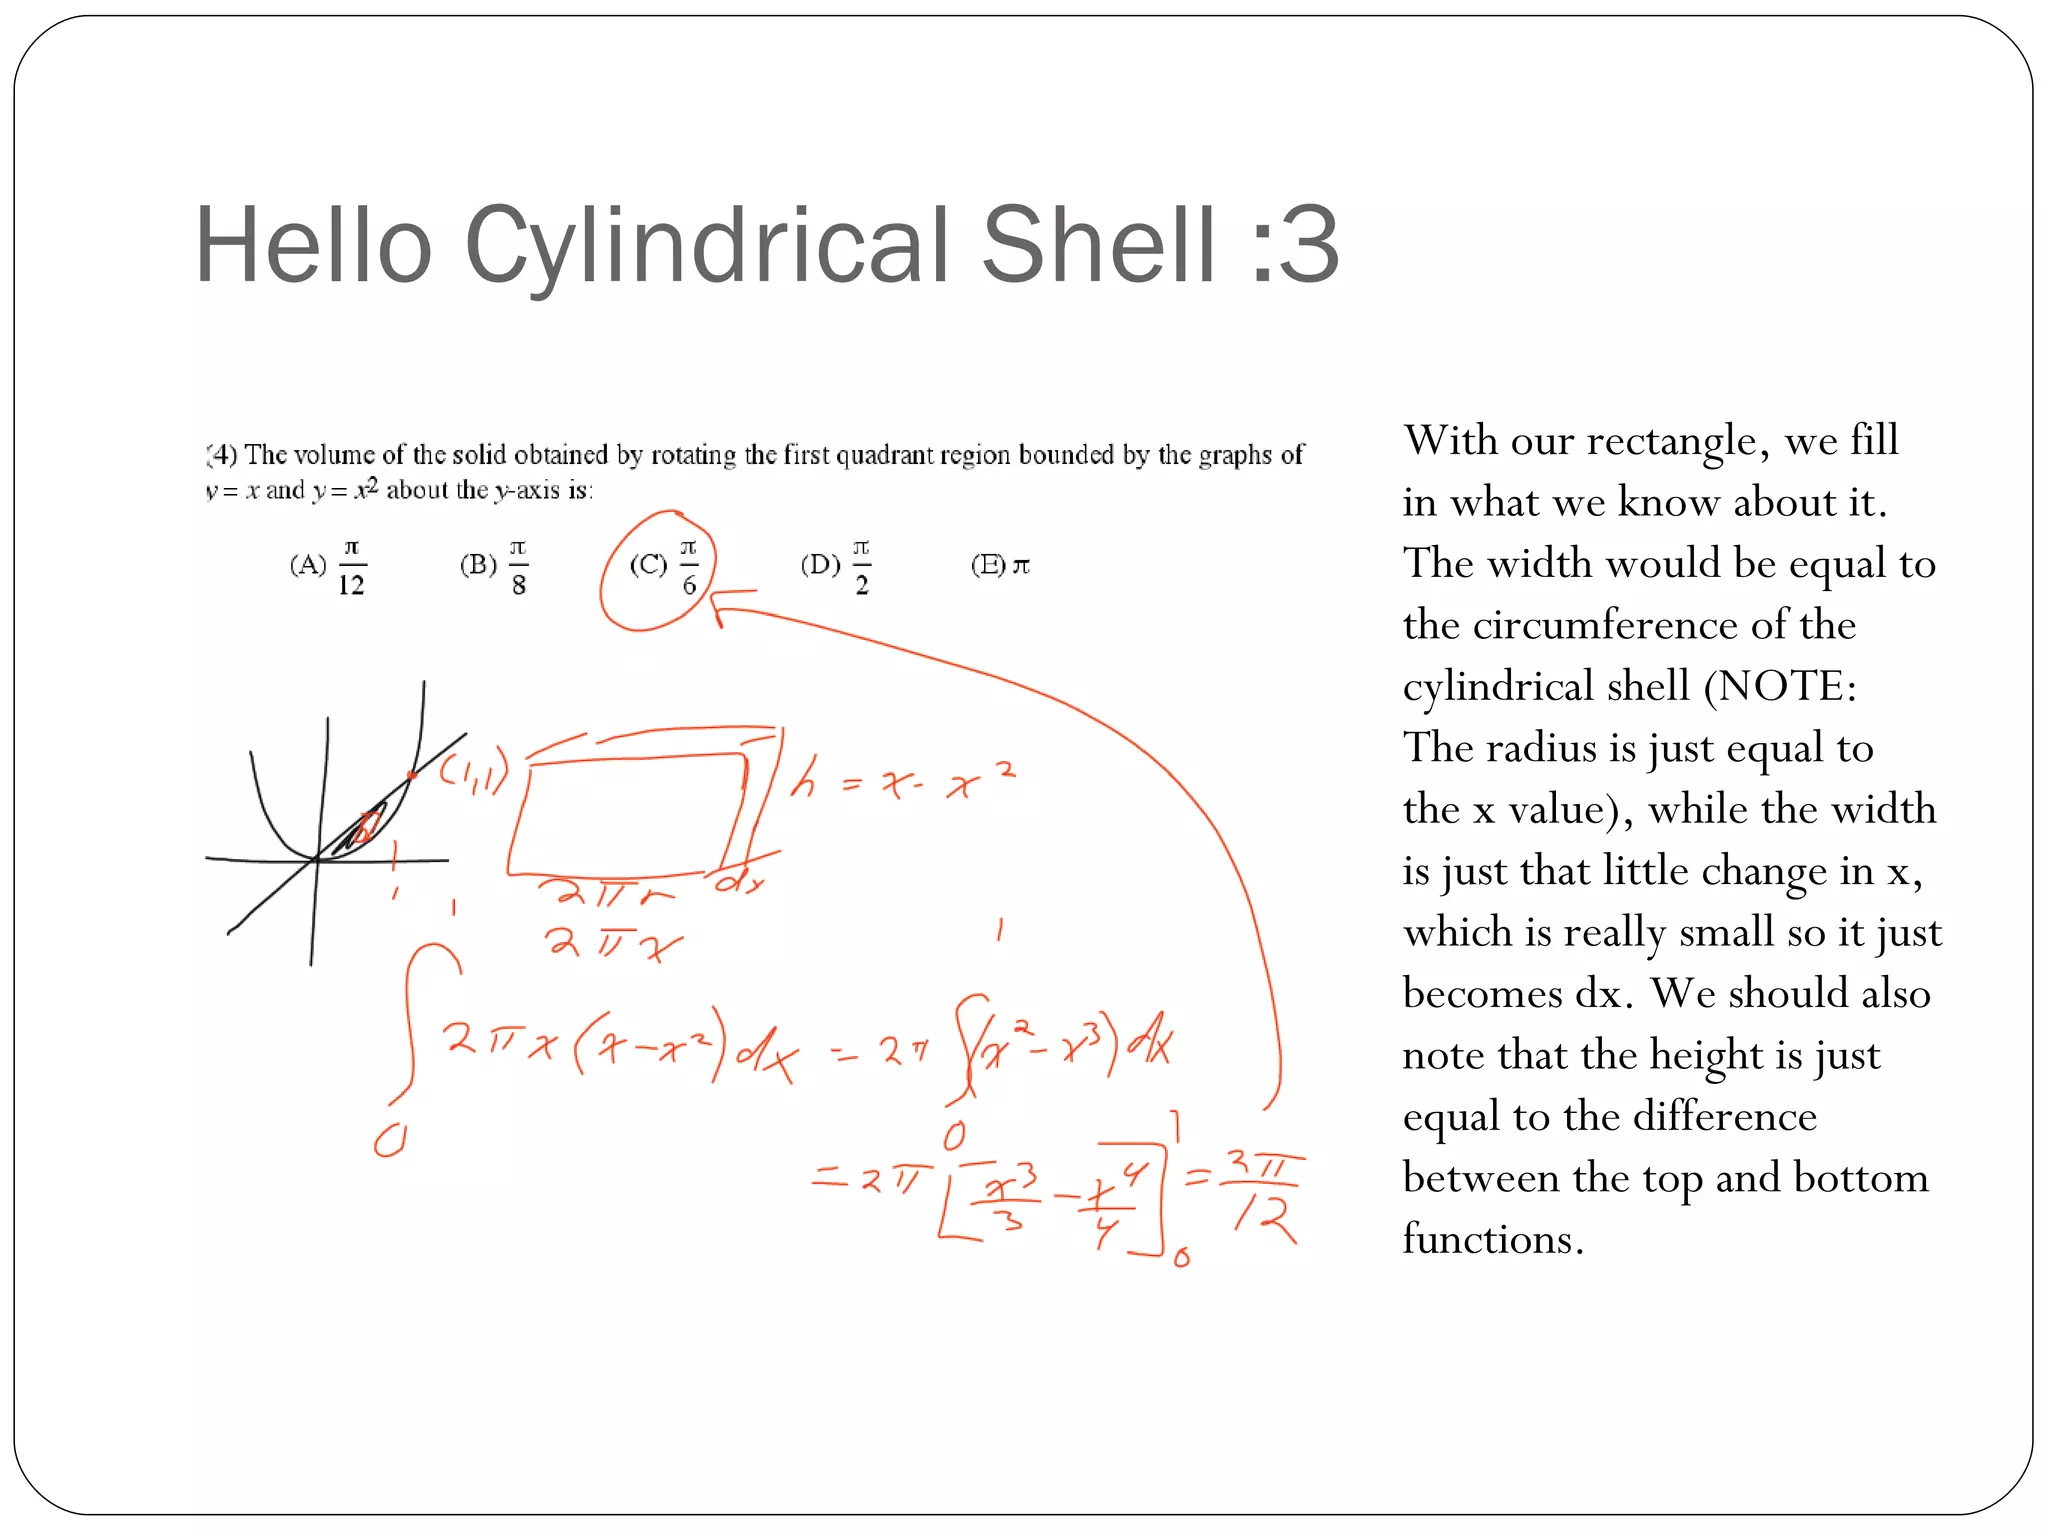 Hello Cylindrical Shell :3
(4) The volume of the solid obtained by rotating the first quadrant region bounded by the graphs of
y = x and y = x² about the y-axis is:
(A) π/12 (B) π/8 (C) π/6 (D) π/2 (E) π
(1,1)
h = x - x²
2πr dx
2πx
1
1
∫₀¹ 2πx(x-x²)dx = 2π ∫₀¹ (x²-x³)dx
= 2π [x³/3 - x⁴/4]₀¹ = 2π/12
With our rectangle, we fill
in what we know about it.
The width would be equal to
the circumference of the
cylindrical shell (NOTE:
The radius is just equal to
the x value), while the width
is just that little change in x,
which is really small so it just
becomes dx. We should also
note that the height is just
equal to the difference
between the top and bottom
functions.